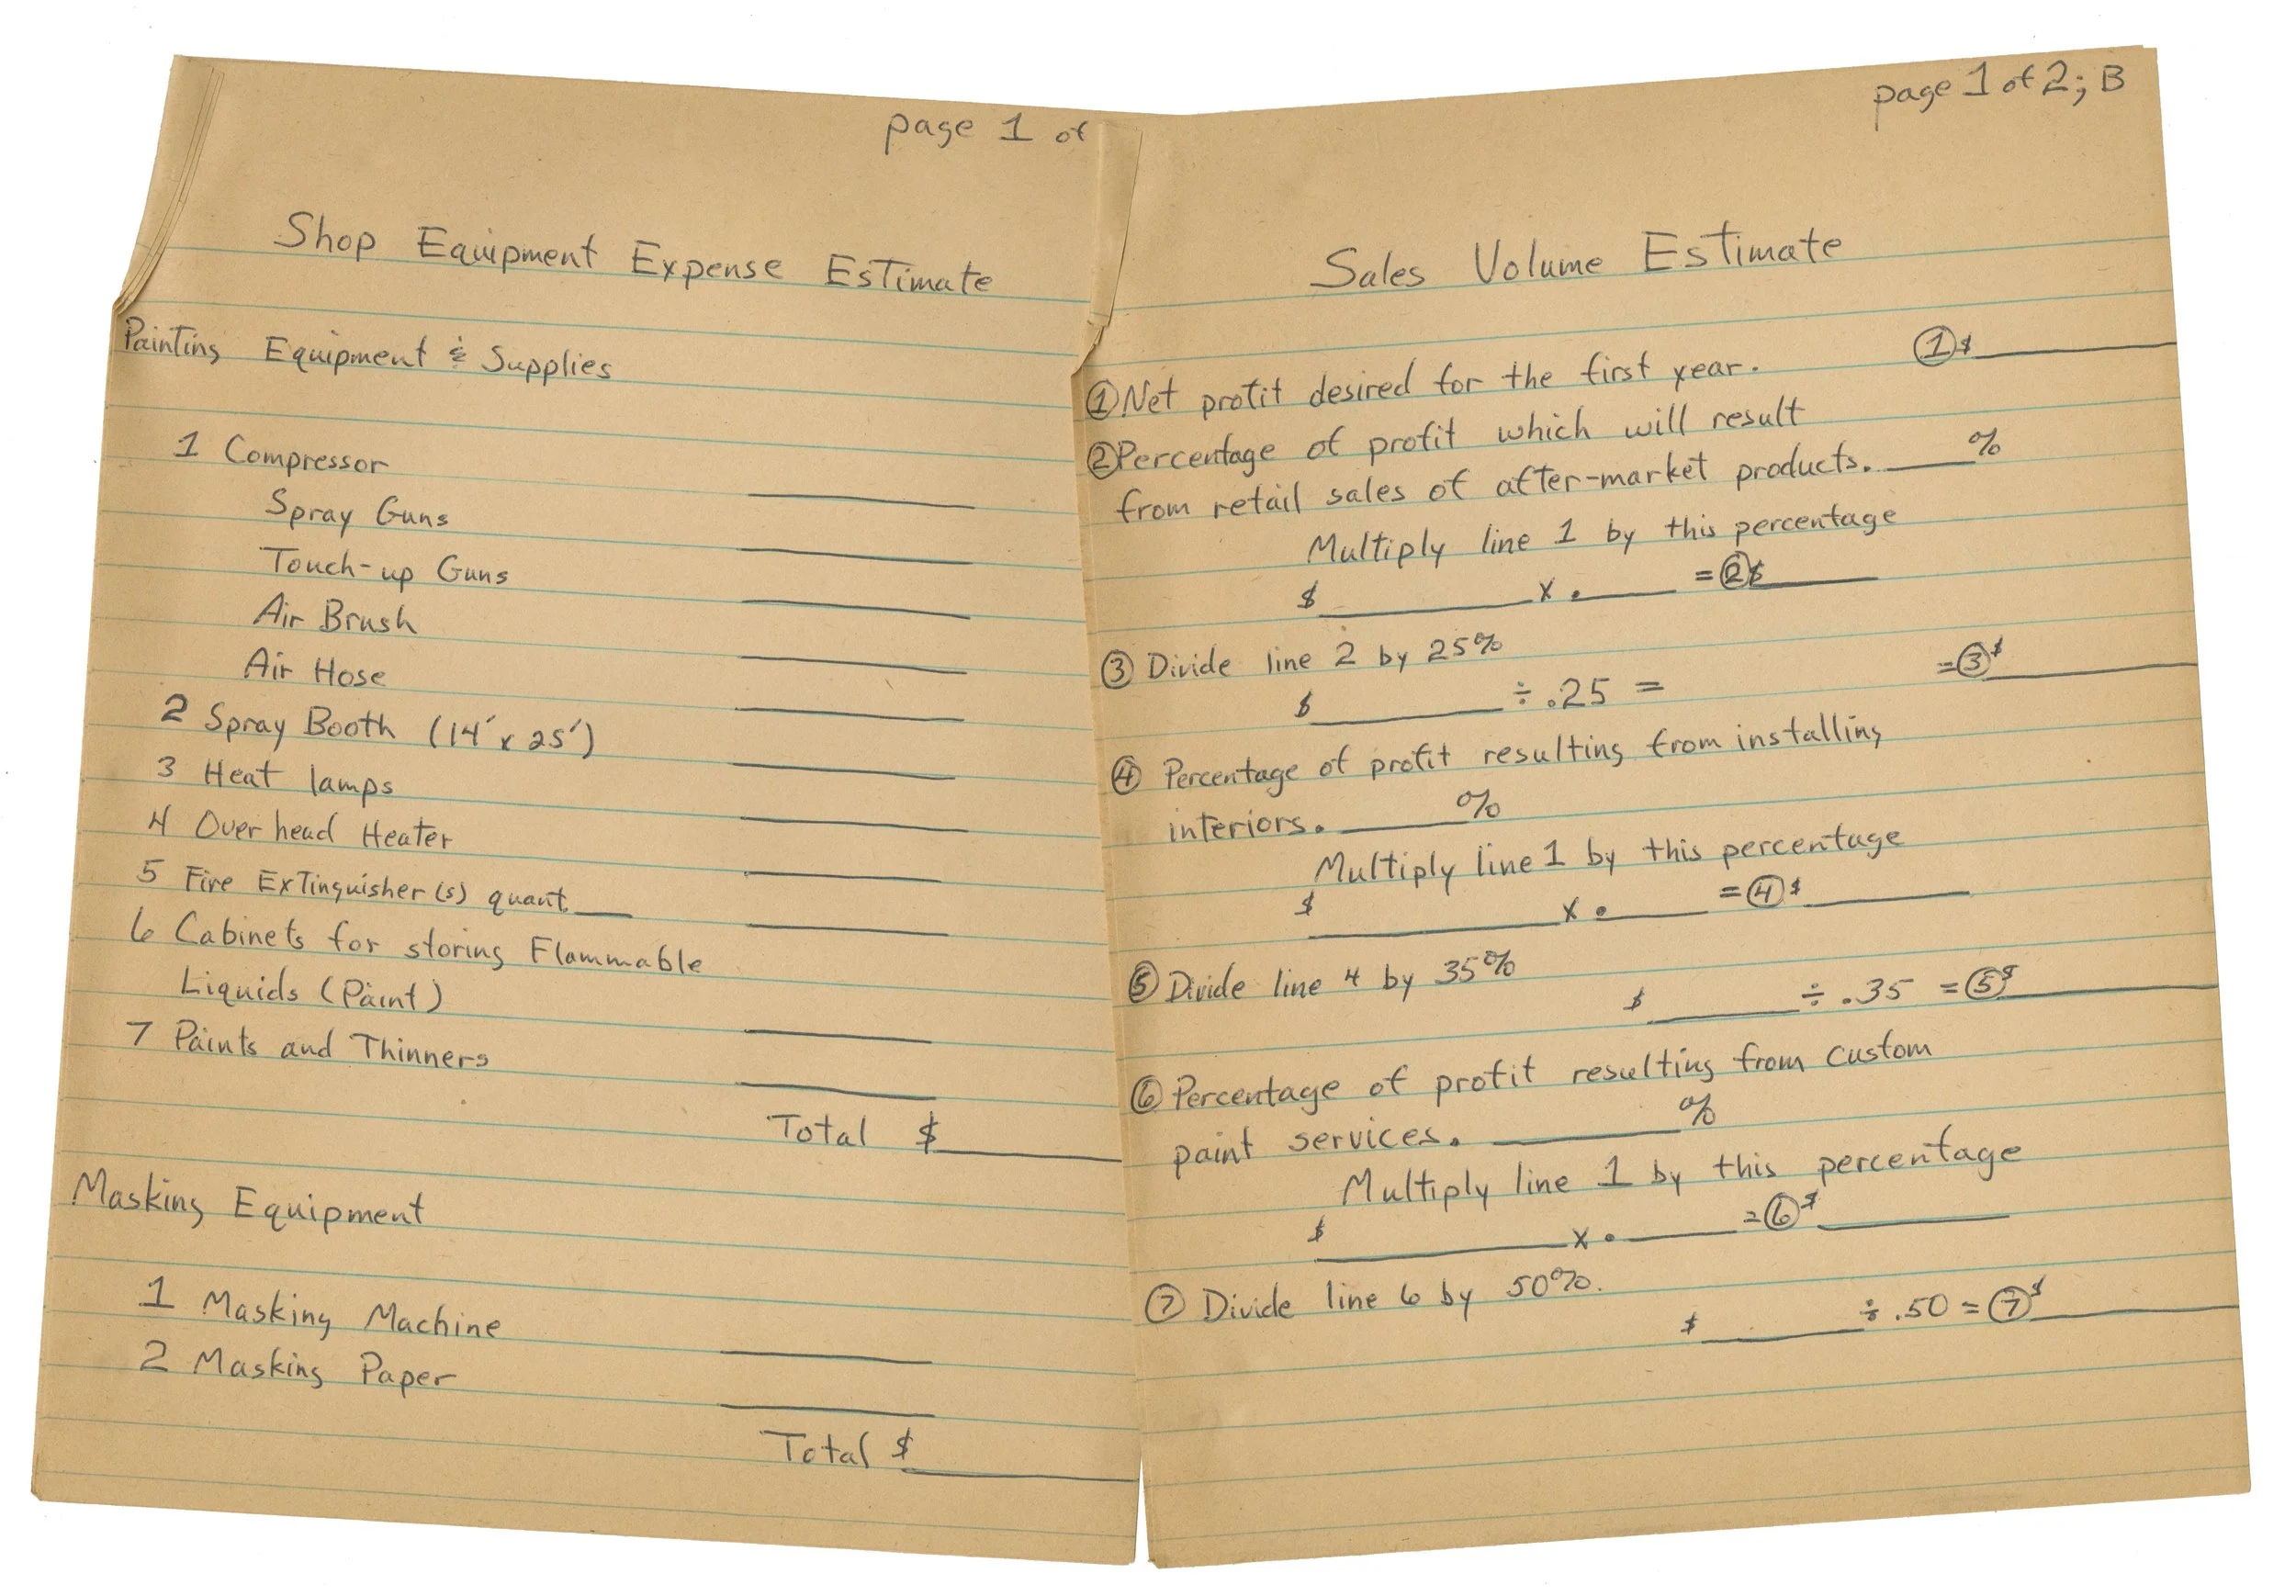 page 1 of
Shop Equipment Expense Estimate
Painting Equipment & Supplies
1 Compressor ____
Spray Guns ____
Touch-up Guns ____
Air Brush ____
Air Hose ____
2 Spray Booth (14' x 25') ____
3 Heat lamps ____
4 Over head Heater ____
5 Fire Extinguisher(s) quant. ____ ____
6 Cabinets for storing Flammable
Liquids (Paint) ____
7 Paints and Thinners ____
Total $ ____
Masking Equipment
1 Masking Machine ____
2 Masking Paper ____
Total $ ____
page 1 of 2; B
Sales Volume Estimate
① Net profit desired for the first year. ① $ ____
② Percentage of profit which will result
from retail sales of after-market products. ____ %
Multiply line 1 by this percentage
$ ____ x . ____ = ② $ ____
③ Divide line 2 by 25%
$ ____ ÷ .25 = = ③ $ ____
④ Percentage of profit resulting from installing
interiors. ____ %
Multiply line 1 by this percentage
$ ____ x . ____ = ④ $ ____
⑤ Divide line 4 by 35%
$ ____ ÷ .35 = ⑤ $ ____
⑥ Percentage of profit resulting from custom
paint services. ____ %
Multiply line 1 by this percentage
$ ____ x . ____ = ⑥ $ ____
⑦ Divide line 6 by 50%.
$ ____ ÷ .50 = ⑦ $ ____